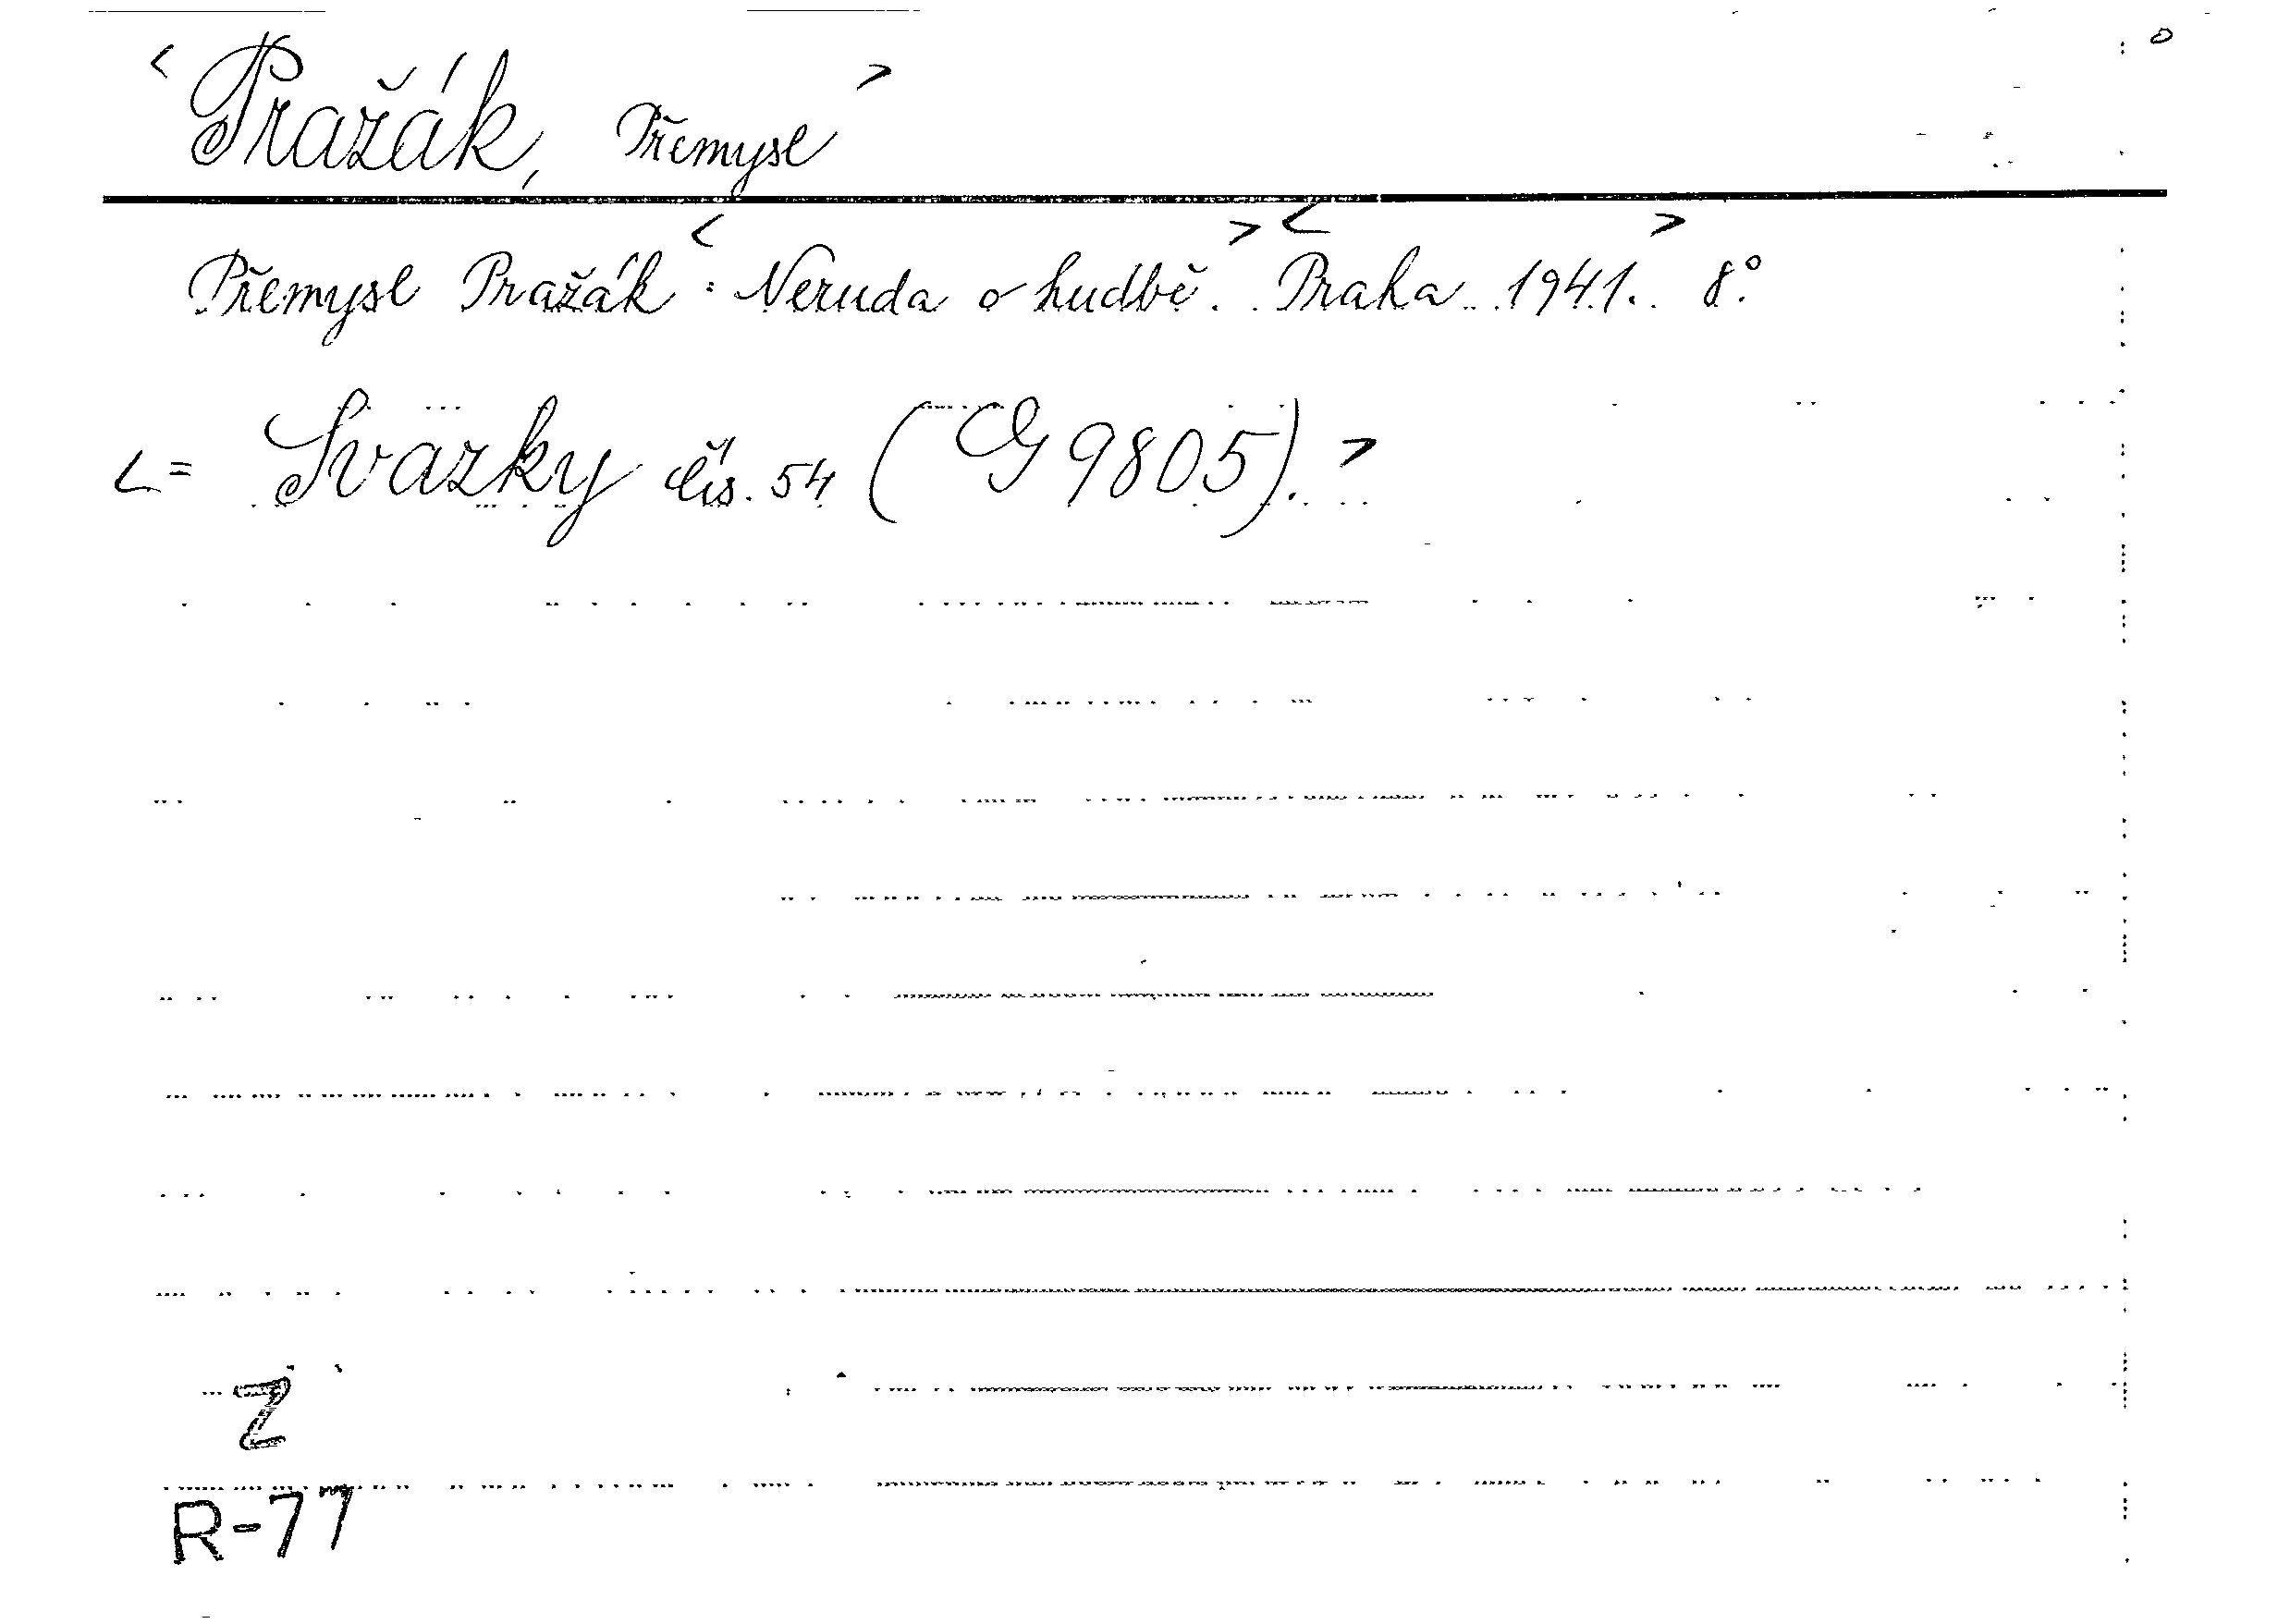 < Pražák, Přemysl >
Přemysl Pražák: < Neruda o hudbě. > < Praha 1941. > 8°.
< = Svazky čís. 54 (G 9805). >
Z
R-77